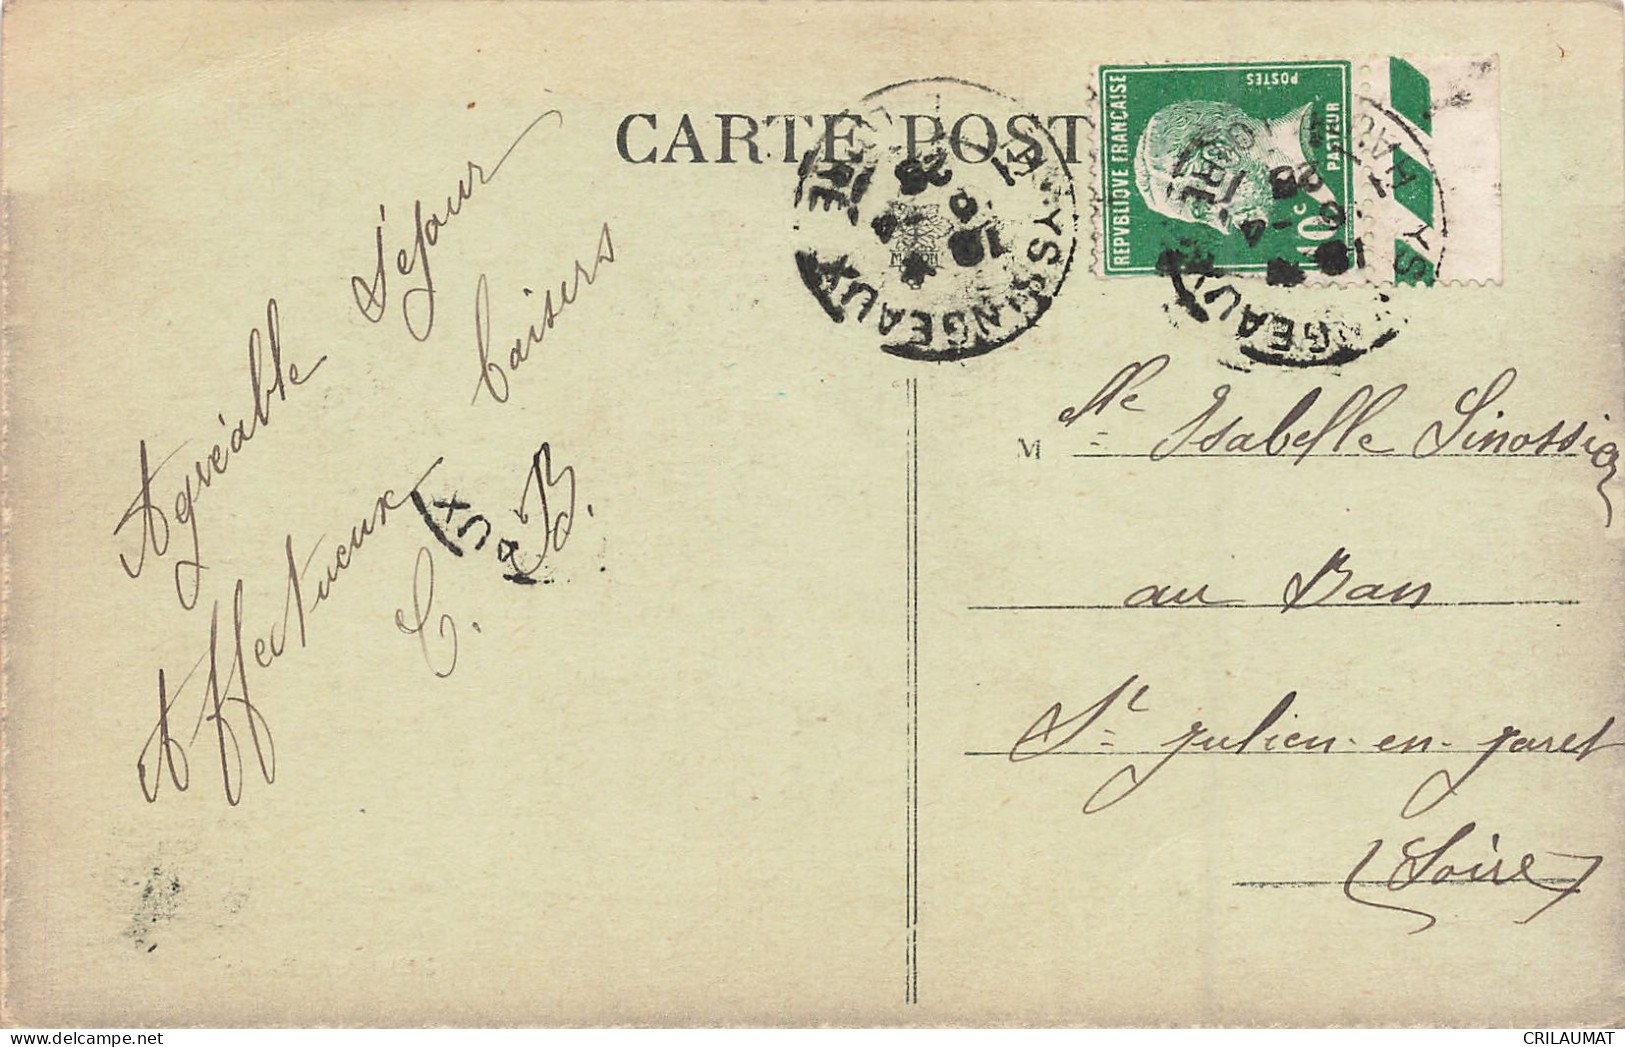 CARTE POST
REPVBLIQVE FRANÇAISE
POSTES
PASTEUR
10c
YSSINGEAUX
YSSINGEAUX
Agréable Séjour
Affectueux baisers
C. B.
M lle Isabelle Sinossier
au Ban
St Julien-en-Jaret
(Loire)
www.delcampe.net
CRILAUMAT